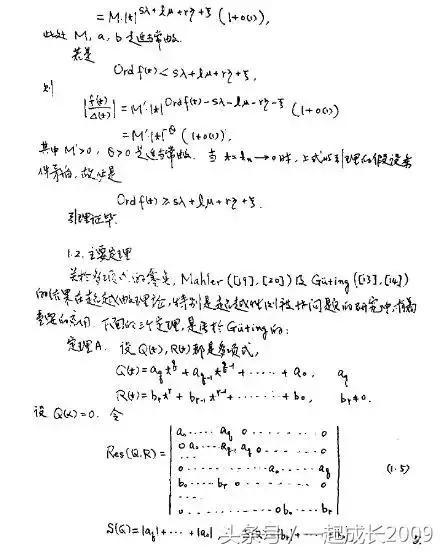 = M·|t|^{sλ+lμ+rη+ξ} (1+o(1)),
此处 M, a, b 是适当常数.
若是
Ord f(t) < sλ+lμ+rη+ξ,
则
|f(t)/Δ(t)| = M'·|t|^{Ord f(t)-sλ-lμ-rη-ξ} (1+o(1))
= M'·|t|^{-θ} (1+o(1)),
其中 M'>0, θ>0 是适当常数. 当 t=t_n→0 时, 上式与引理的假设条
件矛盾, 故必是
Ord f(t) ≥ sλ+lμ+rη+ξ.
引理证毕.
1.2. 主要定理
关于多项式的零点, Mahler ([19], [20]) 及 Güting ([13], [14])
的结果在超越数论, 特别是超越性问题的研究中, 有着
重要的应用. 下面的三个定理, 是属于 Güting 的:
定理A. 设 Q(t), R(t) 都是多项式,
Q(t) = a_q t^q + a_{q-1} t^{q-1} + …… + a_0, a_q
R(t) = b_r t^r + b_{r-1} t^{r-1} + …… + b_0, b_r≠0.
设 Q(α)=0. 令
Res(Q.R) =
a_0 …… a_q 0 …… 0
0 a_0 …… a_q 0 …… 0
0 …… a_0 …… a_q
b_0 …… b_r 0 …… 0
0 …… 0 b_0 … b_r
(1.5)
S(Q) = |a_q| + … + |a_0|
头条号 / 一起成长2009